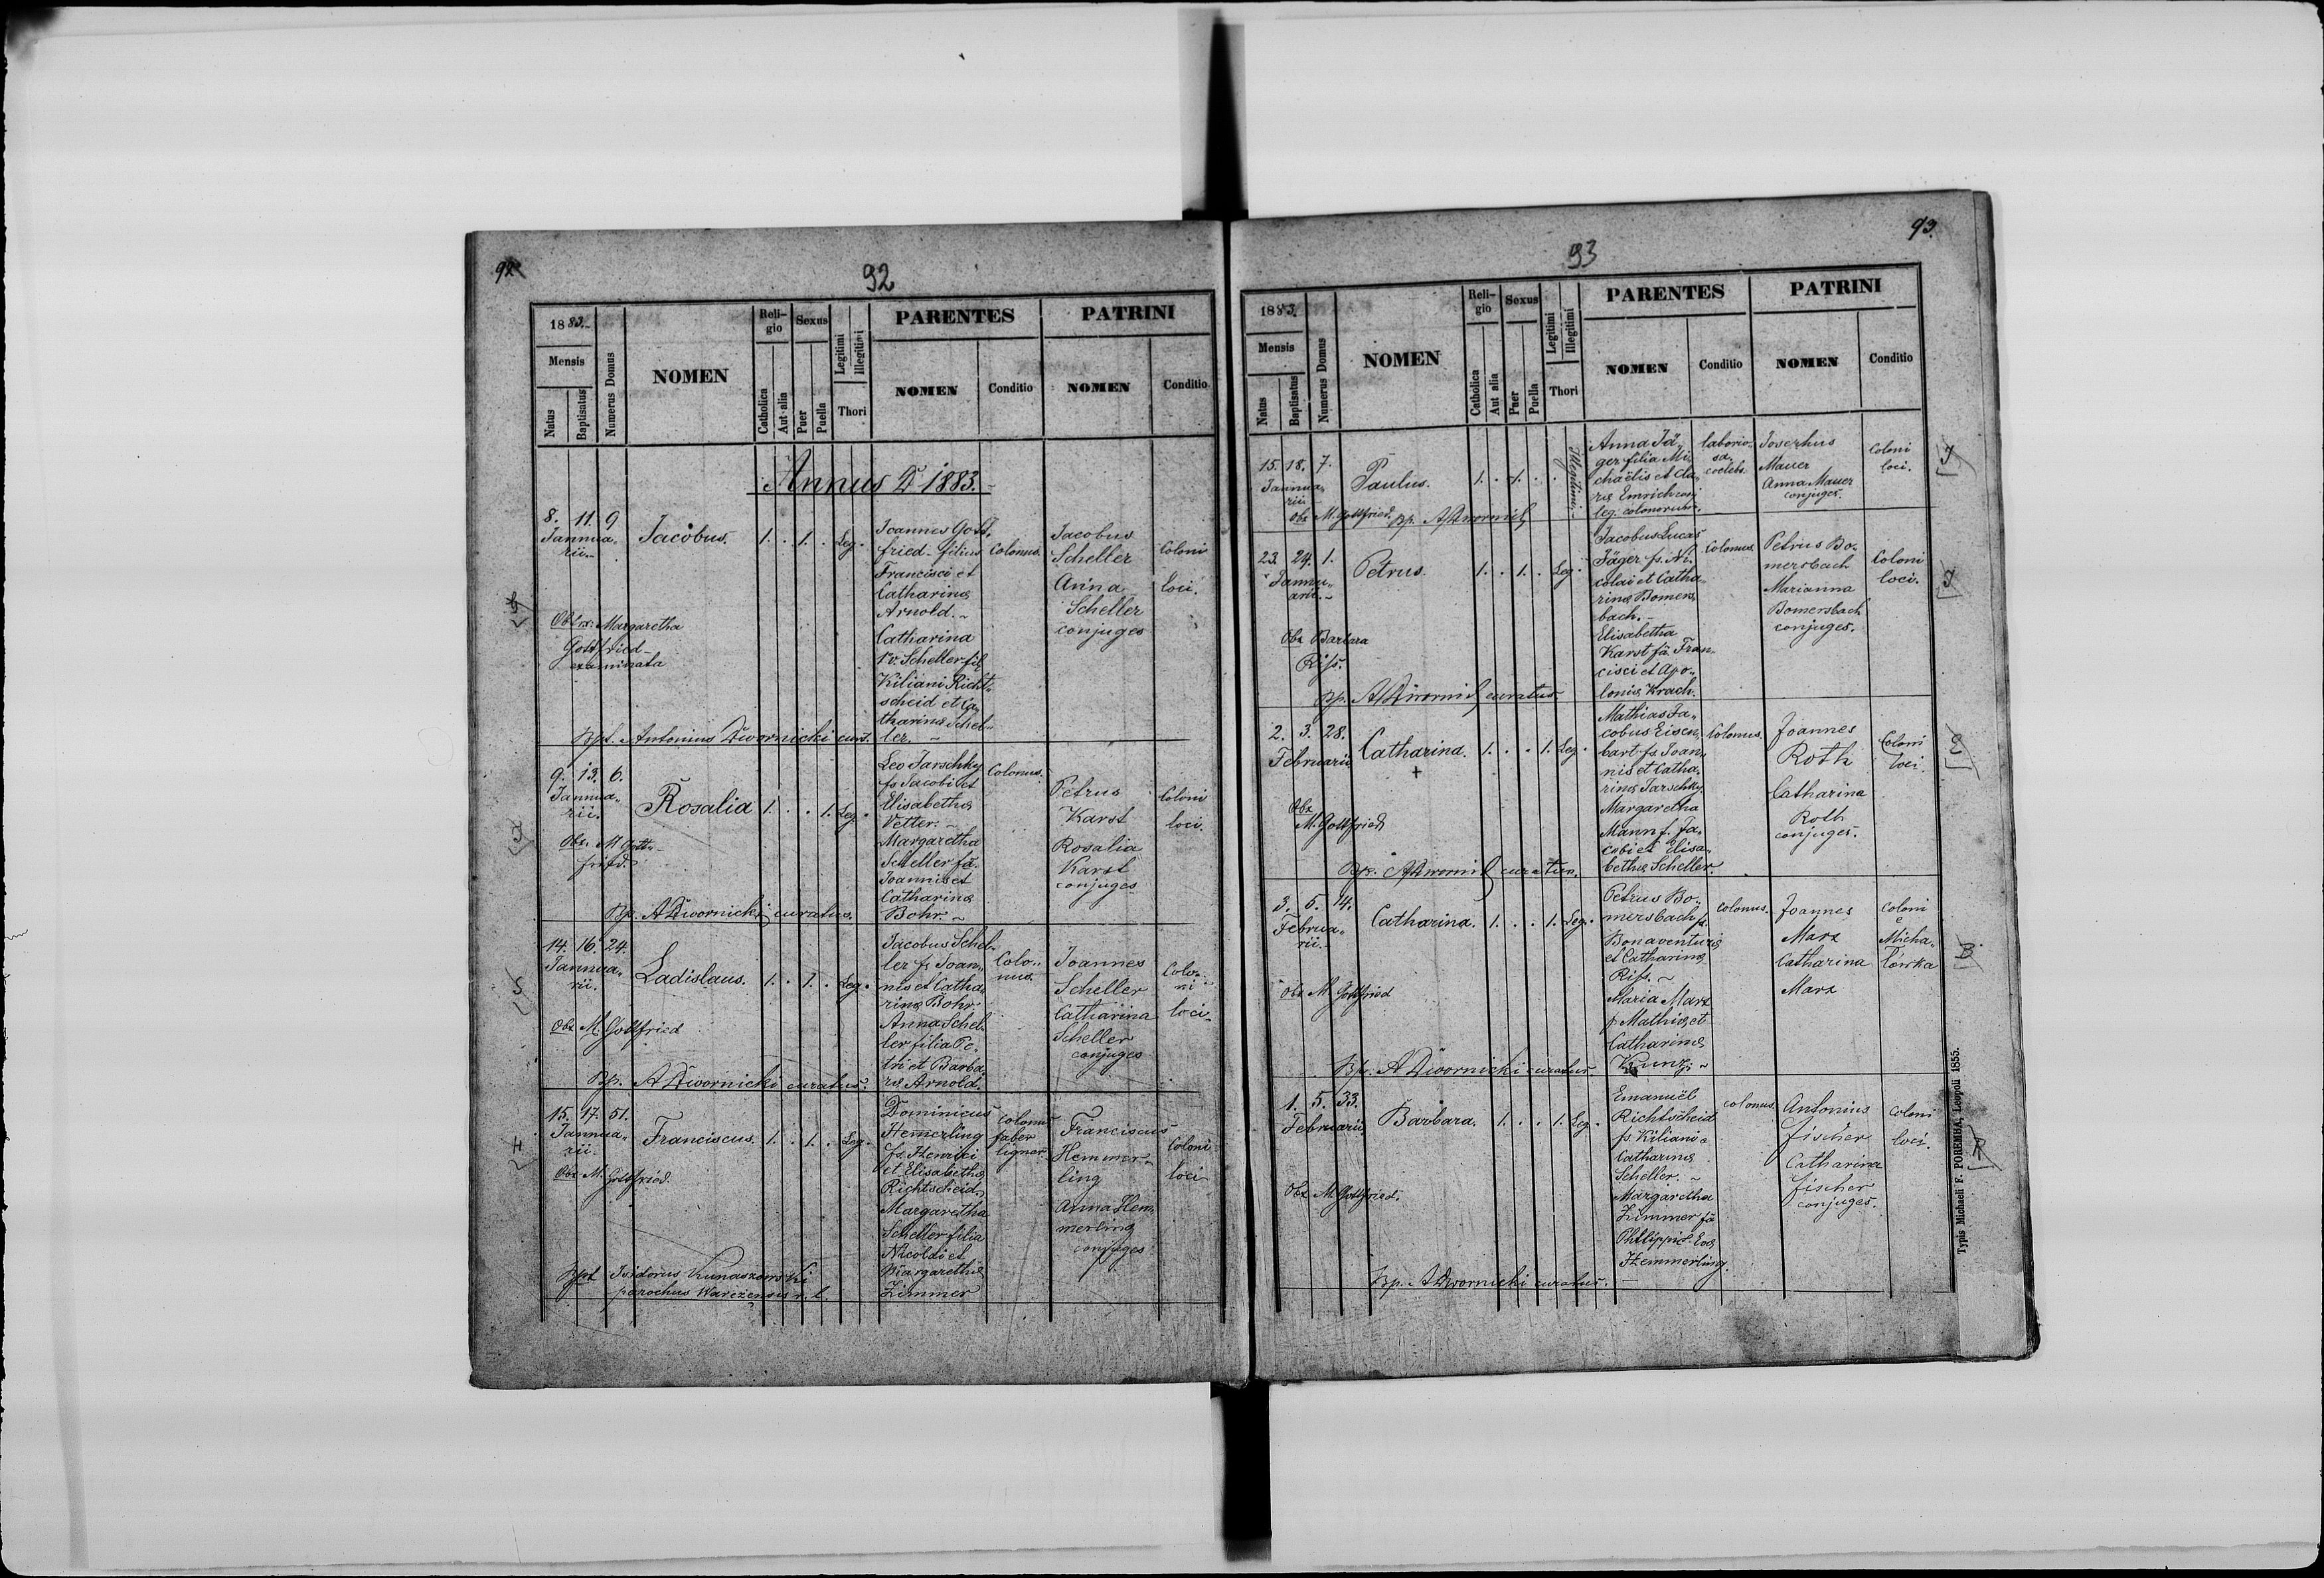 92
92
1883.
Mensis
Natus
Baptisatus
Numerus Domus
NOMEN
Reli-
gio
Catholica
Aut alia
Sexus
Puer
Puella
Legitimi
Illegitimi
Thori
PARENTES
NOMEN
Conditio
PATRINI
NOMEN
Conditio
Annus D 1883.
8. 11. 9
Jannua-
rii.
Jacobus. 1. . 1. . Leg.
Joannes Gott-
fried filius
Francisci et
Catharina
Arnold.
Catharina
1v. Scheller fil
Kiliani Richt-
scheid et Ca-
tharina Schel-
ler.
Colonus.
Jacobus
Scheller
Anna
Scheller
conjuges
Coloni
Loci.
Obstx: Margaretha
Gottfried
examinata
Bpt. Antonius Dwornicki cur.
9. 13. 6.
Jannua-
rii.
Rosalia 1. . . 1. Leg.
Leo Jarschky
fs Jacobi et
Elisabetha
Vetter.
Margaretha
Scheller fa
Joannis et
Catharina
Bohr.
Colonus.
Petrus
Karst
Rosalia
Karst
conjuges
Coloni
loci.
Obx. M Gott-
fried.
Bp. ADwornicki curatus.
14. 16. 24.
Jannua-
rii.
Ladislaus. 1. . 1. . Leg.
Jacobus Schel-
ler fs Joan-
nis et Catha-
rina Bohr
Anna Schel-
ler filia Pe-
tri et Barba-
ra Arnold.
Colo-
nus
Joannes
Scheller
Catharina
Scheller
conjuges
Colo-
ni
loci
Obx M. Gottfried
Bp. ADwornicki curatus.
15. 17. 51.
Jannua-
rii.
Franciscus. 1. . 1. . Leg.
Dominicus
Hemerling
fs Henrici
et Elisabetha
Richtscheid
Margaretha
Scheller filia
Nicolai et
Margaretha
Zimmer
colonus
faber
lignar.
Franciscus
Hemmer-
ling
Anna Hem-
merling
conjuges
Coloni
loci
Obx M. Gottfried.
Bpt Isidorus Kunaszowski
parochus Warezensis r. l.
93
93.
1883.
Mensis
Natus
Baptisatus
Numerus Domus
NOMEN
Reli-
gio
Catholica
Aut alia
Sexus
Puer
Puella
Legitimi
Illegitimi
Thori
PARENTES
NOMEN
Conditio
PATRINI
NOMEN
Conditio
15. 18. 7.
Jannua-
rii
Paulus. 1. . 1. . Illegitimi
Anna Jä-
ger filia Mi-
chaëlis et Cla-
ra Emrich conj
leg. colonorum.
laborio-
sa
coelebs.
Josephus
Mauer
Anna Mauer
conjuges
Coloni
loci.
Obx M. Gottfried. Bp. ADwornicki
23. 24. 1.
Jannu-
arii.
Petrus. 1. . 1. . Leg.
Jacobus Lucas
Jäger fs. Ni-
colai et Catha-
rina Bomers-
bach.
Elisabetha
Karst fa Fran-
cisci et Apo-
lonia Krach.
Colonus.
Petrus Bo-
mersbach
Marianna
Bomersbach
conjuges.
Coloni
loci.
Obx Barbara
Rifs.
Bp. ADwornicki curatus
2. 3. 28.
Februarii
Catharina. 1. . . 1. Leg.
Mathias Ja-
cobus Eisen-
bart fs Joan-
nis et Catha-
rina Jarschky.
Margaretha
Mann f. Ja-
cobi et Elisa-
betha Scheller.
Colonus.
Joannes
Roth
Catharina
Roth
conjuges.
Coloni
loci.
Obx
M. Gottfried
Bp. ADwornicki curatus.
3. 5. 14.
Februa-
rii.
Catharina. 1. . . 1. Leg.
Petrus Bo-
mersbach fs
Bonaventura
et Catharina
Rifs.
Maria Marx
f. Mathia et
Catharina
Kunz.
colonus.
Joannes
Marx
Catharina
Marx
Coloni
e
Micha-
łówka
Obx M Gottfried
Bp. ADwornicki curatus.
1. 5. 33.
Februarii
Barbara. 1. . . 1. Leg.
Emanuël
Richtscheid
fs. Kiliani &
Catharina
Scheller.
Margaretha
Zimmer fa
Philippi & Eva
Hemmerling.
colonus.
Antonius
Fischer
Catharina
Fischer
conjuges.
Coloni
loci.
Obx M. Gottfried.
Bp. ADwornicki curatus.
Typis Michaeli F. POREMBA, Leopoli 1855.